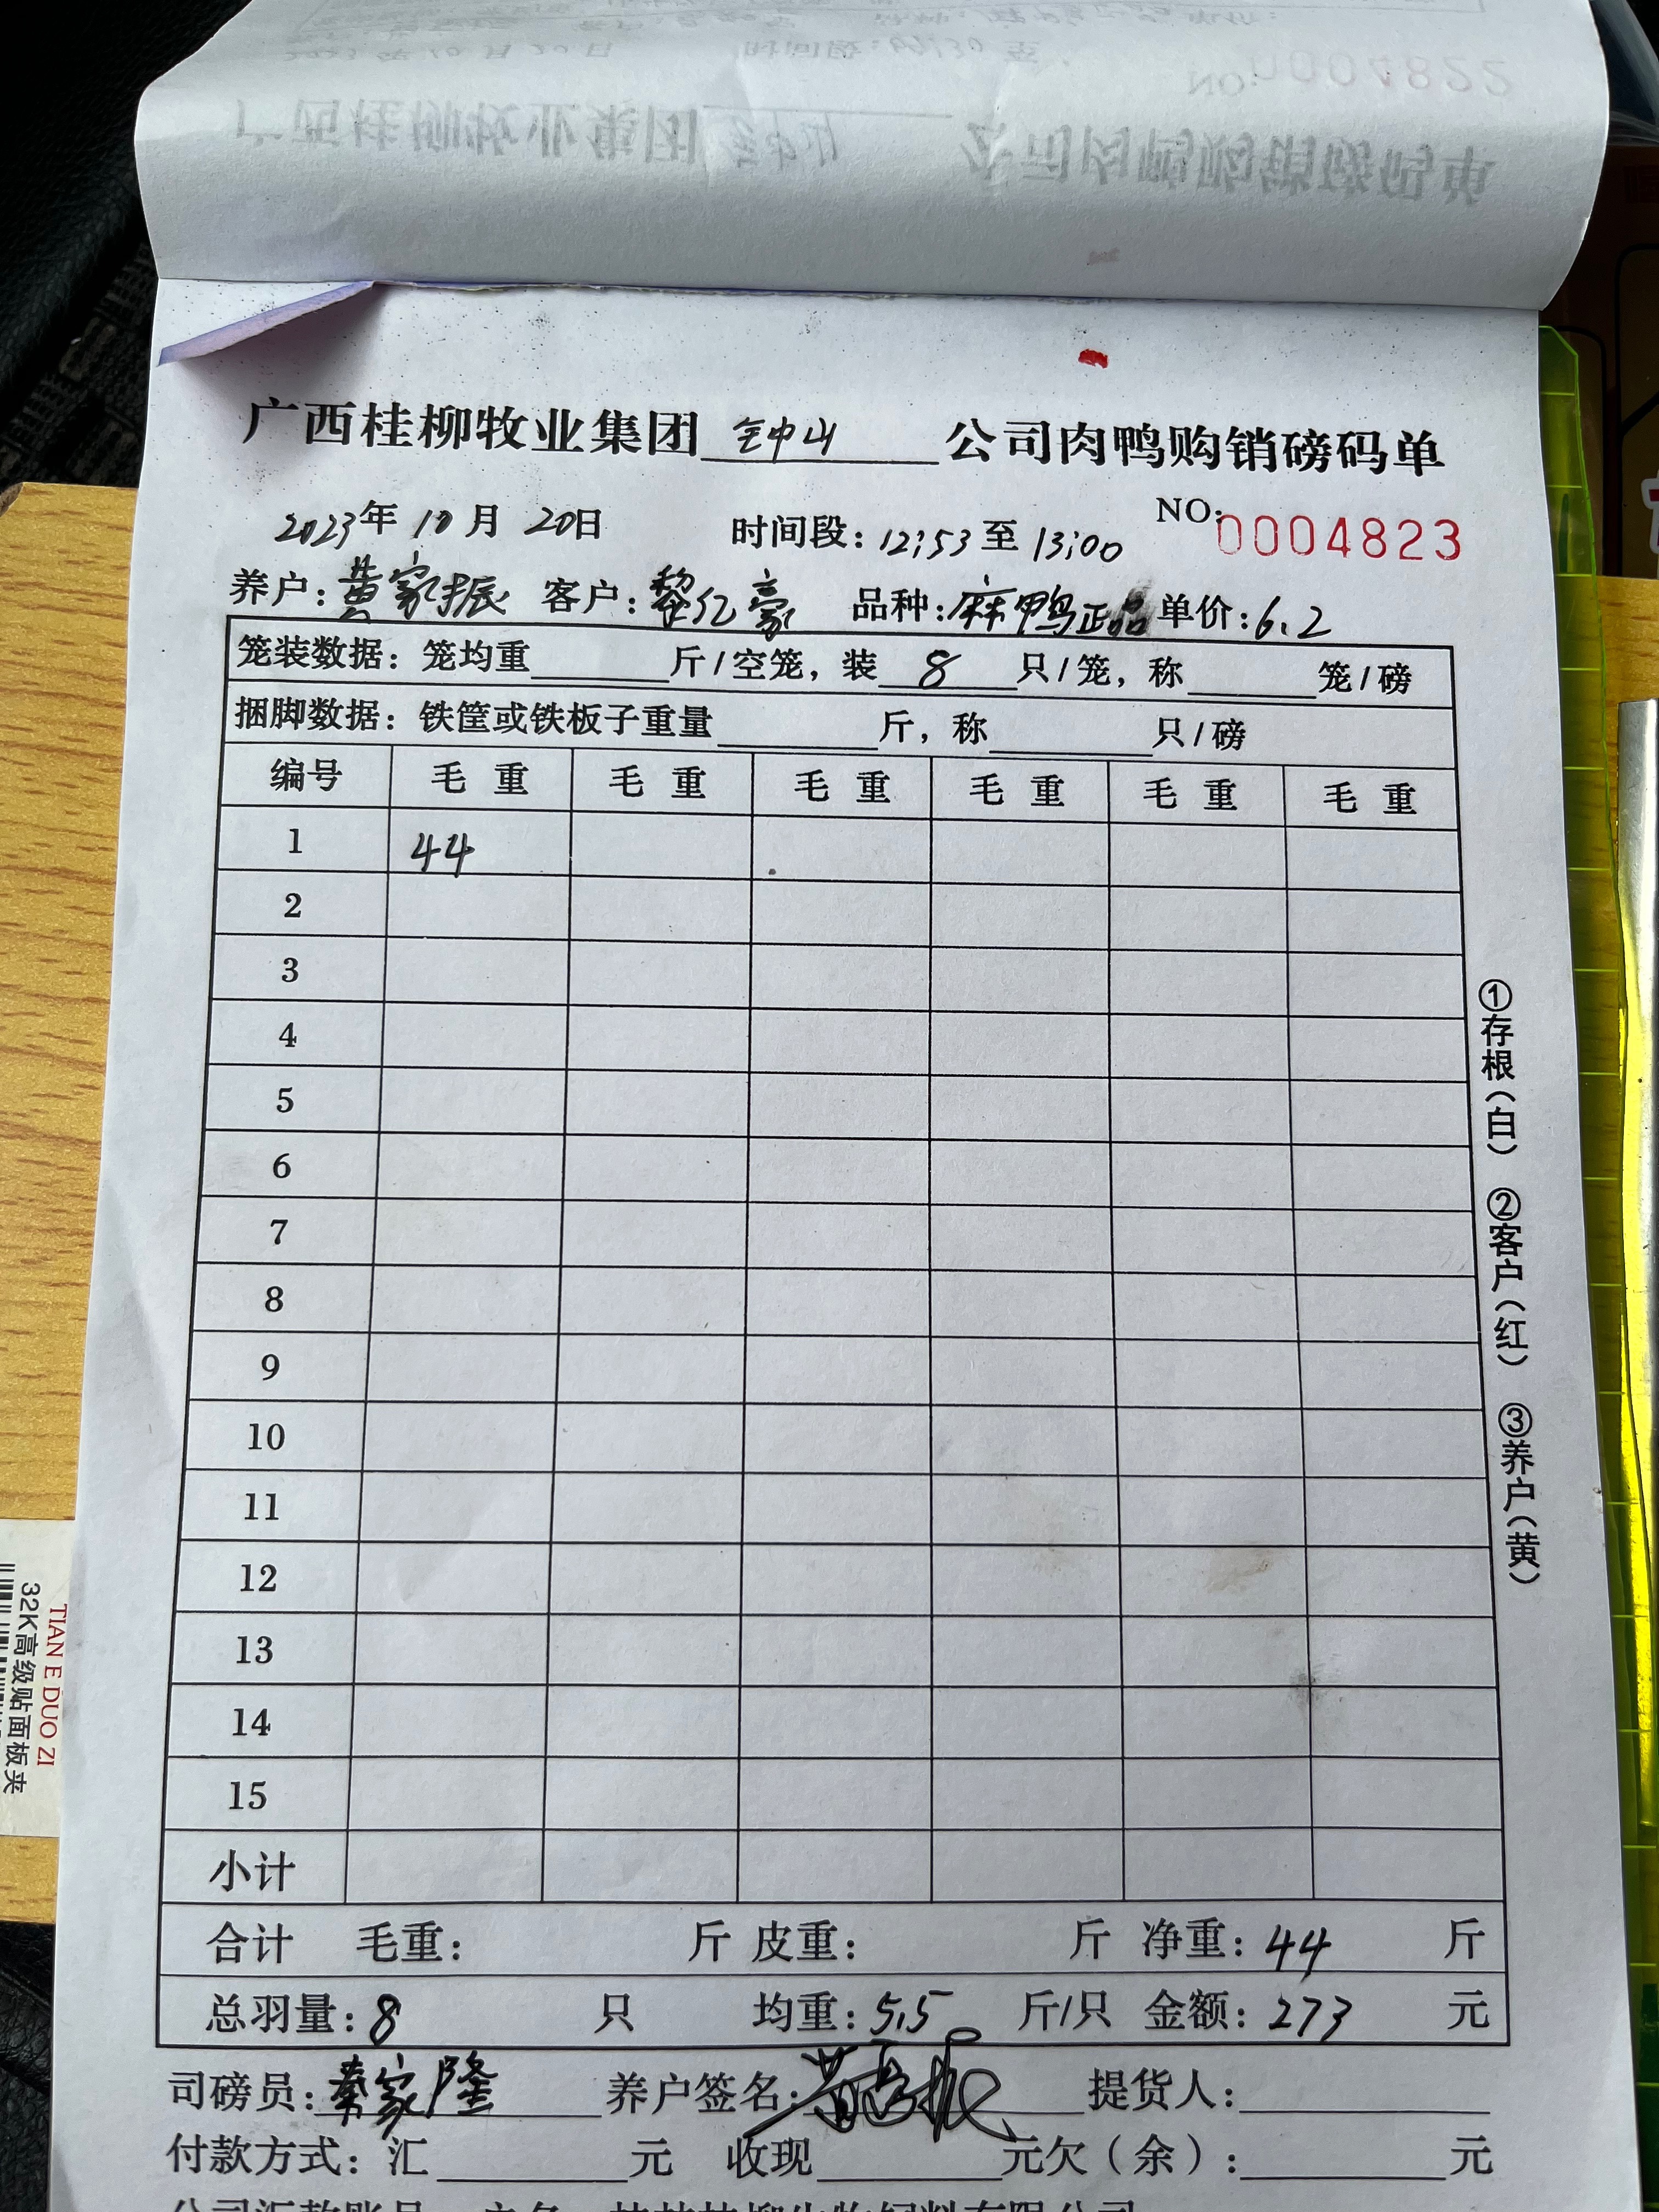 广西桂柳牧业集团 钟山 公司肉鸭购销磅码单
2023年 10月 20日 时间段：12:53至13:00 NO:0004823
养户：黄家振 客户：黎亿豪 品种：麻鸭正品 单价：6.2
笼装数据：笼均重 斤/空笼，装 8 只/笼，称 笼/磅
捆脚数据：铁筐或铁板子重量 斤，称 只/磅
编号 毛重 毛重 毛重 毛重 毛重 毛重
1 44
2
3
4
5
6
7
8
9
10
11
12
13
14
15
小计
合计 毛重： 斤 皮重： 斤 净重：44 斤
总羽量：8 只 均重：5.5 斤/只 金额：273 元
司磅员：秦家隆 养户签名：黄家振 提货人：
付款方式：汇 元 收现 元欠（余）： 元
①存根（白） ②客户（红） ③养户（黄）
TIAN E DUO ZI
32K高级贴面板夹